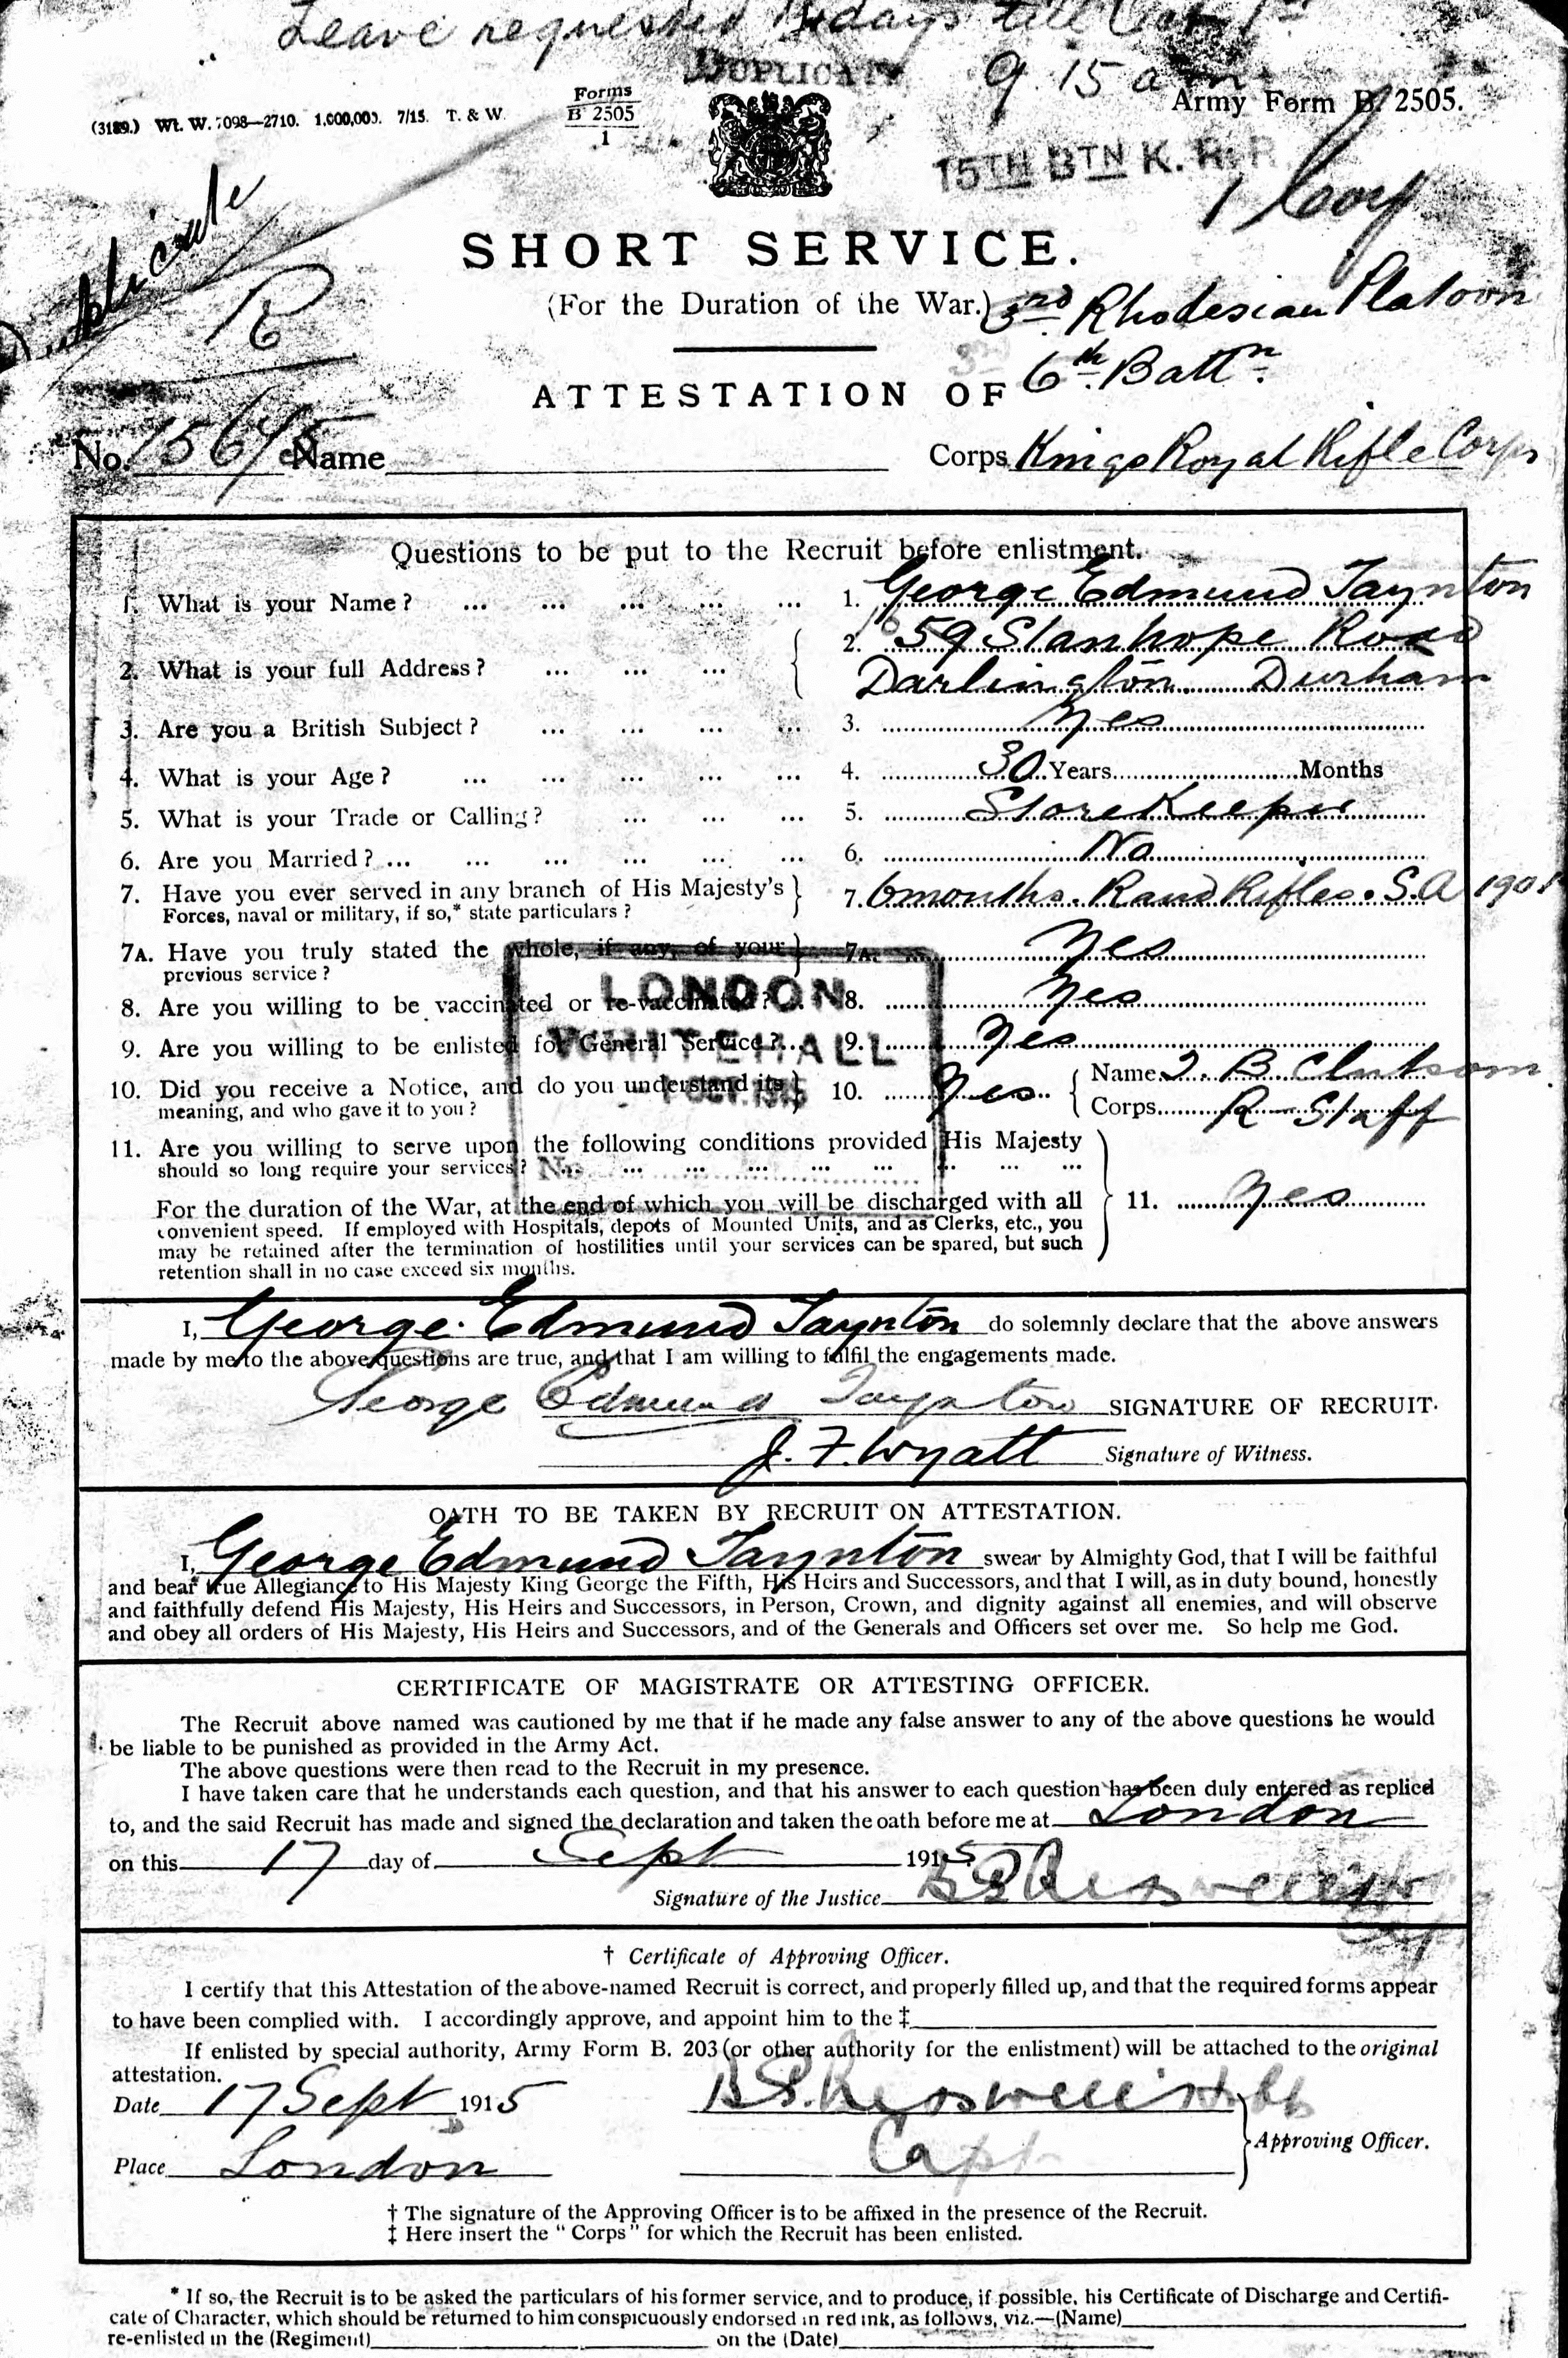 Leave requested days till Oct 1st
DUPLICATE
9.15 am
(3189.) Wt. W. 7098—2710. 1,000,000. 7/15. T. & W.
Forms
B 2505
1
Army Form B. 2505.
15TH BTN K. R. R
1 Coy
Duplicate
R
SHORT SERVICE.
(For the Duration of the War.)
3rd Rhodesian Platoon
6th Battn.
ATTESTATION OF
No. Name Corps Kings Royal Rifle Corps
Questions to be put to the Recruit before enlistment.
1. What is your Name? ... ... ... ... ... 1. George Edmund Taynton
2. What is your full Address? ... ... ... 2. 59 Stanhope Road
Darlington. Durham
3. Are you a British Subject? ... ... ... ... 3. Yes
4. What is your Age? ... ... ... ... ... 4. 30 Years Months
5. What is your Trade or Calling? ... ... ... 5. Storekeeper
6. Are you Married? ... ... ... ... ... ... 6. No
7. Have you ever served in any branch of His Majesty's
Forces, naval or military, if so,* state particulars? 7. 6 months. Rand Rifles. S.A
7A. Have you truly stated the whole, if any, of your
previous service? 7A. Yes
8. Are you willing to be vaccinated or re-vaccinated? 8. Yes
9. Are you willing to be enlisted for General Service?... 9. Yes
10. Did you receive a Notice, and do you understand its
meaning, and who gave it to you? 10. Yes Name
Corps R Staff
LONDON
WHITEHALL
1 OCT. 1915
No.
11. Are you willing to serve upon the following conditions provided His Majesty
should so long require your services? ... ... ... ... ... ... ... ...
For the duration of the War, at the end of which you will be discharged with all
convenient speed. If employed with Hospitals, depots of Mounted Units, and as Clerks, etc., you
may be retained after the termination of hostilities until your services can be spared, but such
retention shall in no case exceed six months.
11. Yes
I, George Edmund Taynton do solemnly declare that the above answers
made by me to the above questions are true, and that I am willing to fulfil the engagements made.
George Edmund Taynton SIGNATURE OF RECRUIT.
J. F. Wyatt Signature of Witness.
OATH TO BE TAKEN BY RECRUIT ON ATTESTATION.
I, George Edmund Taynton swear by Almighty God, that I will be faithful
and bear true Allegiance to His Majesty King George the Fifth, His Heirs and Successors, and that I will, as in duty bound, honestly
and faithfully defend His Majesty, His Heirs and Successors, in Person, Crown, and dignity against all enemies, and will observe
and obey all orders of His Majesty, His Heirs and Successors, and of the Generals and Officers set over me. So help me God.
CERTIFICATE OF MAGISTRATE OR ATTESTING OFFICER.
The Recruit above named was cautioned by me that if he made any false answer to any of the above questions he would
be liable to be punished as provided in the Army Act.
The above questions were then read to the Recruit in my presence.
I have taken care that he understands each question, and that his answer to each question has been duly entered as replied
to, and the said Recruit has made and signed the declaration and taken the oath before me at London
on this 17 day of Sept 1915
Signature of the Justice
† Certificate of Approving Officer.
I certify that this Attestation of the above-named Recruit is correct, and properly filled up, and that the required forms appear
to have been complied with. I accordingly approve, and appoint him to the ‡
If enlisted by special authority, Army Form B. 203 (or other authority for the enlistment) will be attached to the original
attestation.
Date 17 Sept 1915
Place London
Capt
Approving Officer.
† The signature of the Approving Officer is to be affixed in the presence of the Recruit.
‡ Here insert the "Corps" for which the Recruit has been enlisted.
* If so, the Recruit is to be asked the particulars of his former service, and to produce, if possible, his Certificate of Discharge and Certifi-
cate of Character, which should be returned to him conspicuously endorsed in red ink, as follows, viz.—(Name)
re-enlisted in the (Regiment) on the (Date)